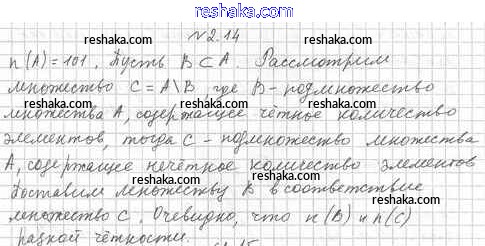 reshaka.com
№2.14
reshaka.com
n(A)=101. Пусть B⊂A. Рассмотрим
reshaka.com
множество C=A\B, где B - подмножество
множества A, содержащее чётное количество
reshaka.com
элементов, тогда C - подмножество множества
A, содержащее нечётное количество элементов
reshaka.com
Поставим множеству B в соответствие
множество C. Очевидно, что n(B) и n(C)
reshaka.com
разной чётности.